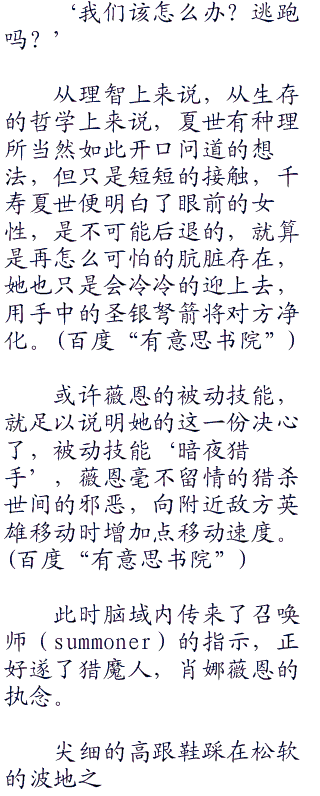 ‘我们该怎么办？逃跑
吗？’
从理智上来说，从生存
的哲学上来说，夏世有种理
所当然如此开口问道的想
法，但只是短短的接触，千
寿夏世便明白了眼前的女
性，是不可能后退的，就算
是再怎么可怕的肮脏存在，
她也只是会冷冷的迎上去，
用手中的圣银弩箭将对方净
化。(百度“有意思书院”)
或许薇恩的被动技能，
就足以说明她的这一份决心
了，被动技能‘暗夜猎
手’，薇恩毫不留情的猎杀
世间的邪恶，向附近敌方英
雄移动时增加点移动速度。
(百度“有意思书院”)
此时脑域内传来了召唤
师（summoner）的指示，正
好遂了猎魔人，肖娜薇恩的
执念。
尖细的高跟鞋踩在松软
的波地之